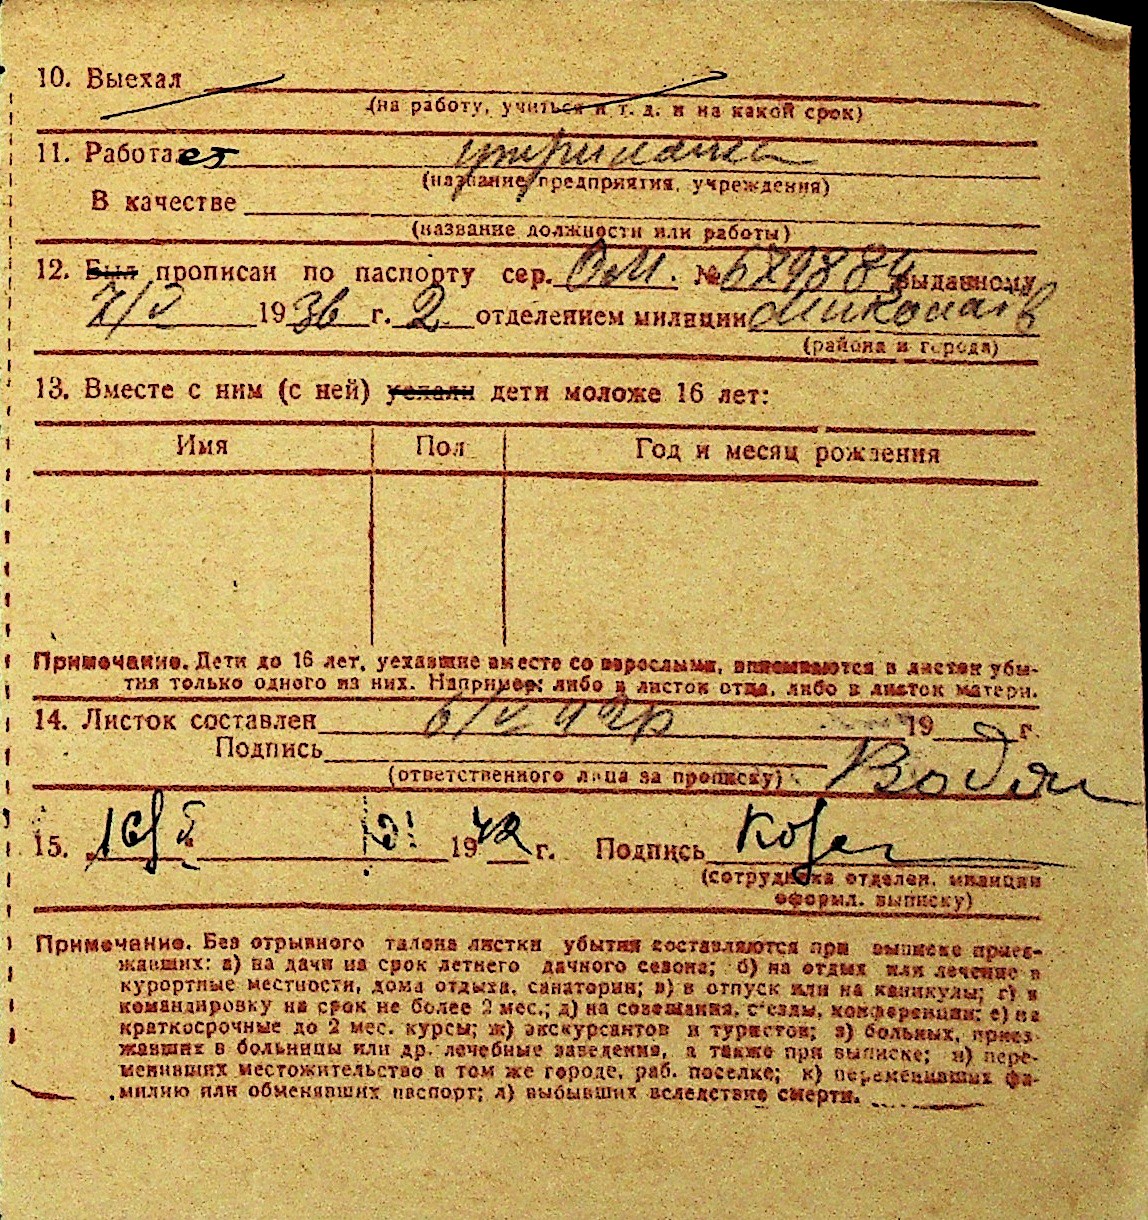 10. Выехал
(на работу, учиться и т. д. и на какой срок)
11. Работает утриманка
(название предприятия, учреждения)
В качестве
(название должности или работы)
12. Был прописан по паспорту сер. О.М. № 679884 выданному
7/V 1936 г. 2 отделением милиции Миколаїв
(района и города)
13. Вместе с ним (с ней) уехали дети моложе 16 лет:
Имя Пол Год и месяц рождения
Примечание. Дети до 16 лет, уехавшие вместе со взрослыми, вписываются в листок убы-
тия только одного из них. Например: либо в листок отца, либо в листок матери.
14. Листок составлен 6/V 42р 19 г.
Подпись
(ответственного лица за прописку)
15. 16/V 1942 г. Подпись
(сотрудника отделен. милиции
оформл. выписку)
Примечание. Без отрывного талона листки убытия составляются при выписке приез-
жавших: а) на дачи на срок летнего дачного сезона; б) на отдых или лечение в
курортные местности, дома отдыха, санатории; в) в отпуск или на каникулы; г) в
командировку на срок не более 2 мес.; д) на совещания, с'езды, конференции; е) на
краткосрочные до 2 мес. курсы; ж) экскурсантов и туристов; з) больных, приез-
жавших в больницы или др. лечебные заведения, а также при выписке; и) пере-
менивших местожительство в том же городе, раб. поселке; к) переменивших фа-
милию или обменявших паспорт; л) выбывших вследствие смерти.